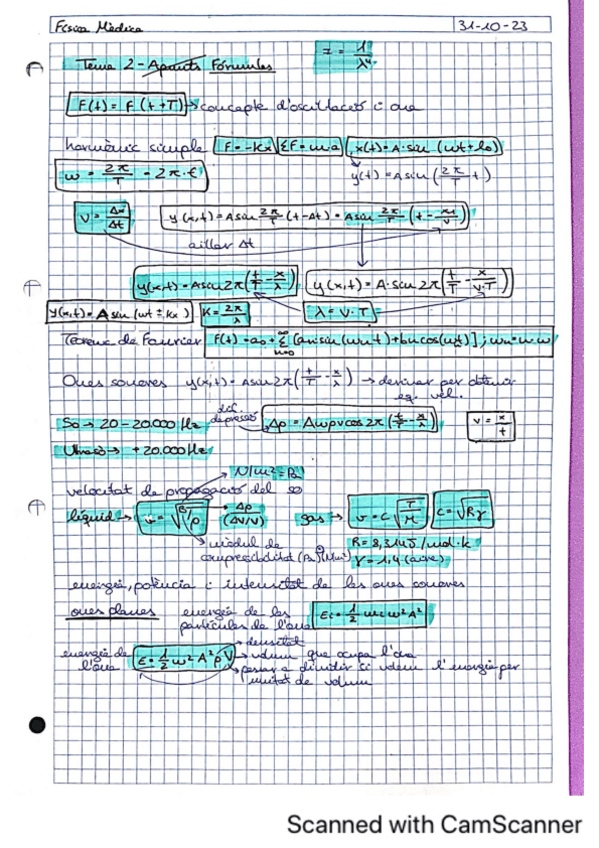 Física Mèdica 31-10-23
Tema 2 - Apunts Fórmules I = 1/λ⁴
F(t) = F(t+T) → concepte d'oscil·lació i ona
harmònic simple F = -Kx ΣF = m·a x(t) = A·sin(ωt + φ₀)
ω = 2π/T = 2π·f y(t) = A sin(2π/T t)
v = Δx/Δt y(x,t) = A sin 2π/T (t-Δt) = A sin 2π/T (t - x/v)
aïllar Δt
y(x,t) = A sin 2π(t/T - x/λ) y(x,t) = A·sin 2π(t/T - x/v·T)
y(x,t) = A sin(ωt ± kx) K = 2π/λ λ = v·T
Teorema de Fourier F(t) = a₀ + Σ [an sin(ωn t) + bn cos(ωn t)] ; ωn = n·ω
Ones sonores y(x,t) = A sin 2π(t/T - x/λ) → derivar per obtenir
eq. vel.
So → 20 - 20.000 Hz dif. de pressió Δp = Aωρv cos 2π(t/T - x/λ) v = x/t
Ultrasò → +20.000 Hz
N/m² = Pa
velocitat de propagació del so
líquid → v = √(B/ρ) Δp/(ΔV/V) gas → v = C√(T/M) C = √(Rγ)
mòdul de R = 8,3145 J/mol·k
compressibilitat (Pa) o (N/m²) γ = 1,4 (aire)
energia, potència i intensitat de les ones sonores
ones planes energia de les Ec = 1/2 m ω² A²
partícules de l'ona
→ densitat
energia de E = 1/2 ω² A² ρ V → volum que ocupa l'ona
l'ona → passar a dividir si volem l'energia per
unitat de volum
Scanned with CamScanner